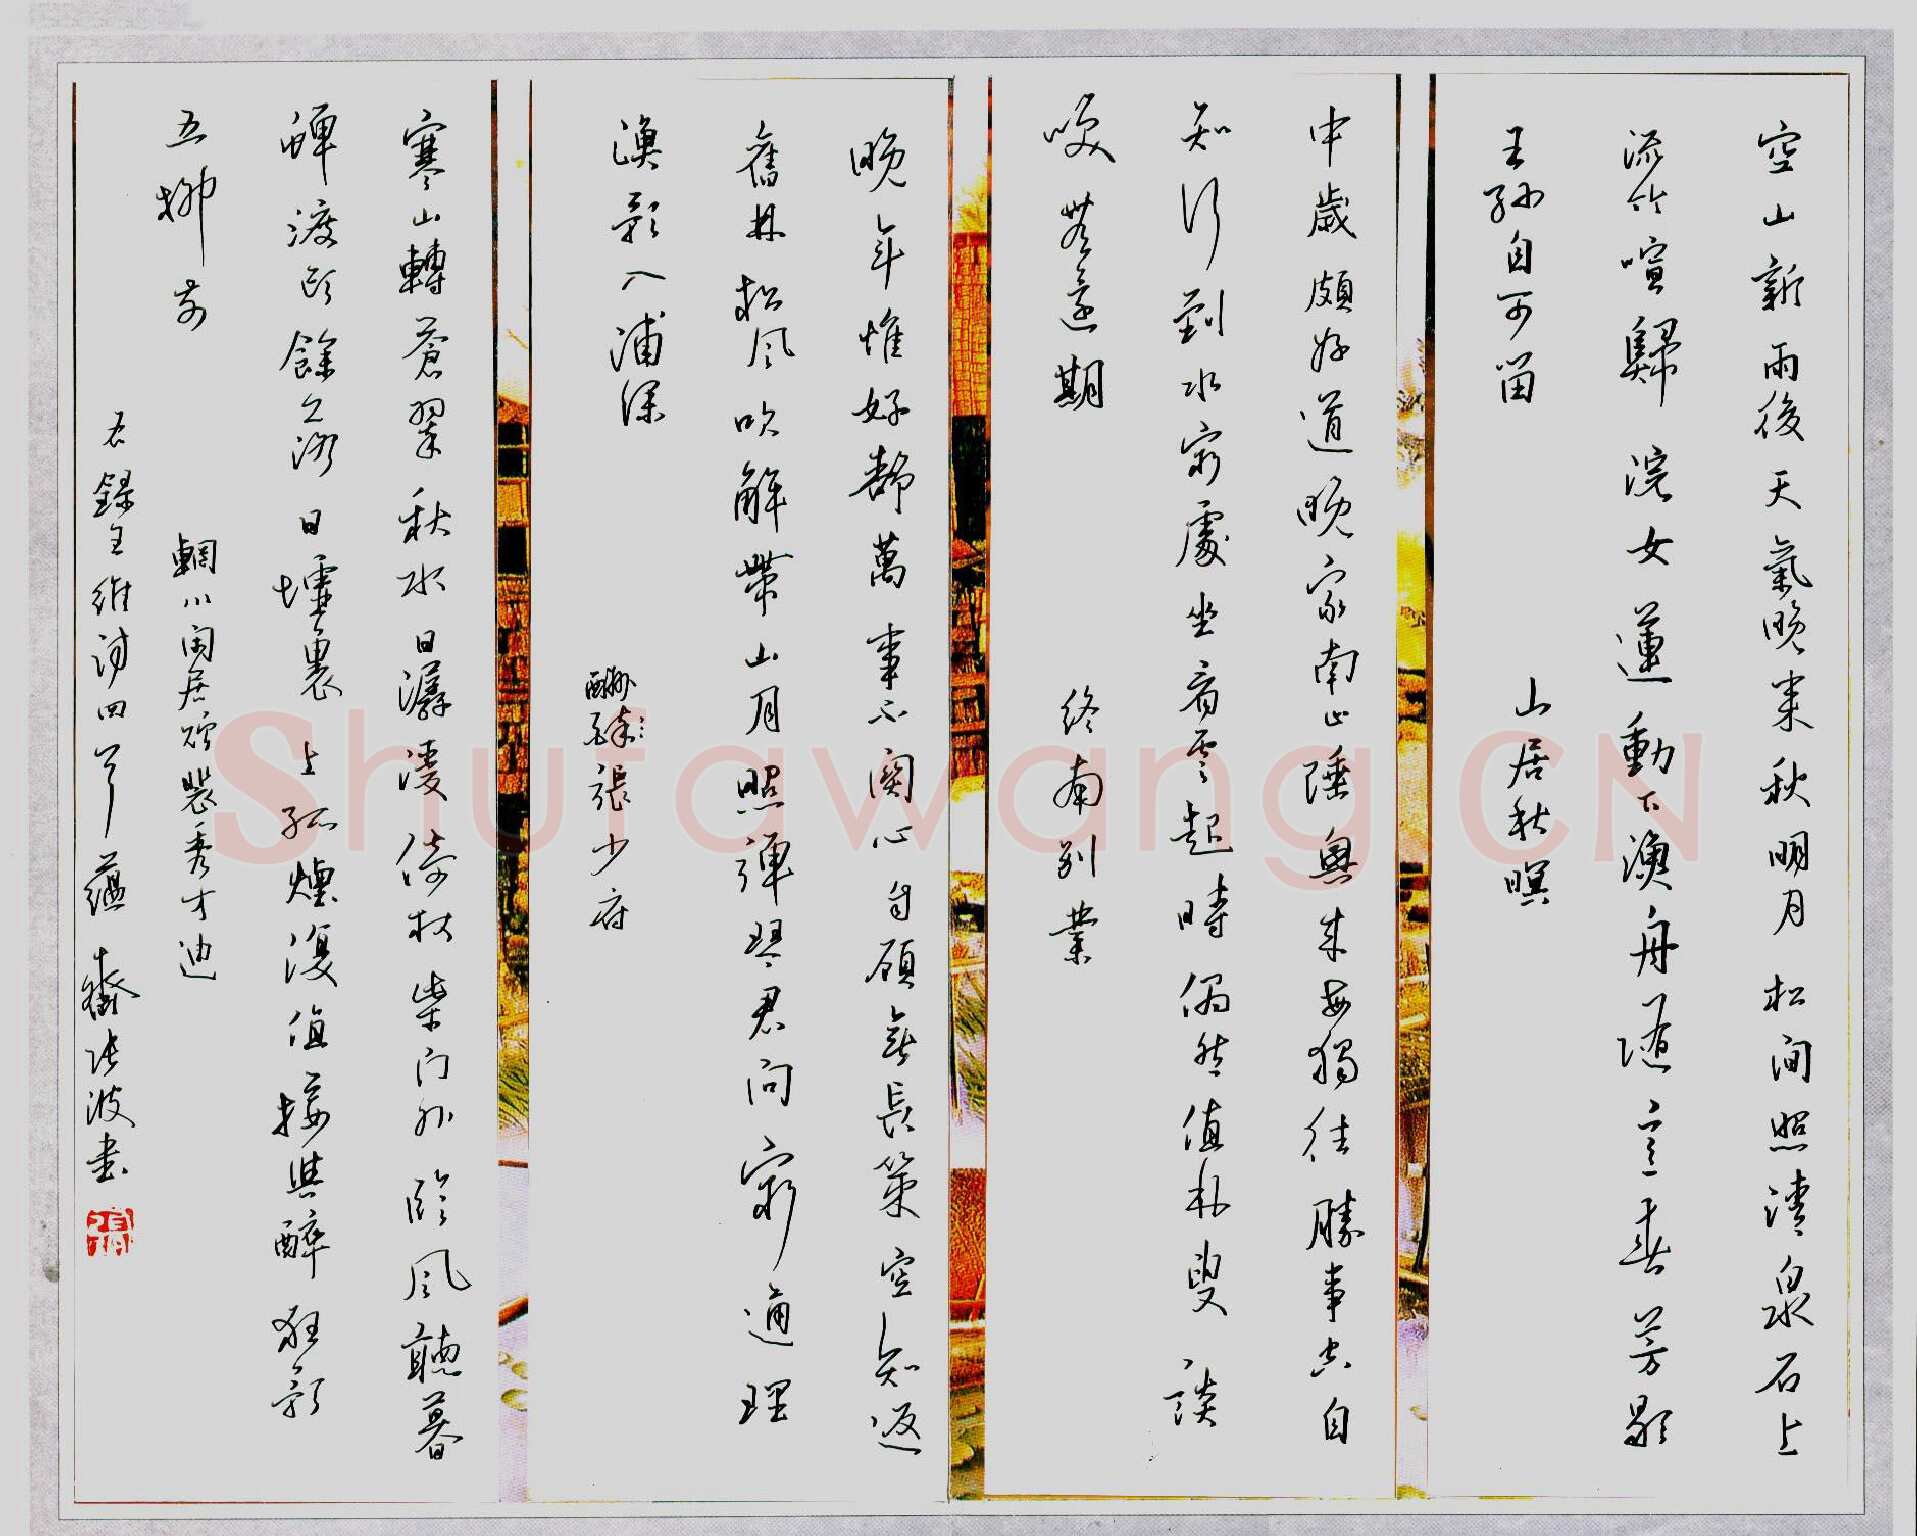 空山新雨後天氣晚來秋明月松間照清泉石上
流竹喧歸浣女蓮動下漁舟隨意春芳歇
王孫自可留
山居秋暝
中歲頗好道晚家南山陲興來每獨往勝事空自
知行到水窮處坐看雲起時偶然值林叟談
咲無還期
終南別業
晚年惟好靜萬事不關心自顧無長策空知返
舊林松風吹解帶山月照彈琴君問窮通理
漁歌入浦深
酬張少府
寒山轉蒼翠秋水日潺湲倚杖柴門外臨風聽暮
蟬渡頭餘落日墟裏上孤煙復值接輿醉狂歌
五柳前
輞川閑居贈裴秀才迪
右錄王維詩四首 蘊張波書
Shufawang.CN